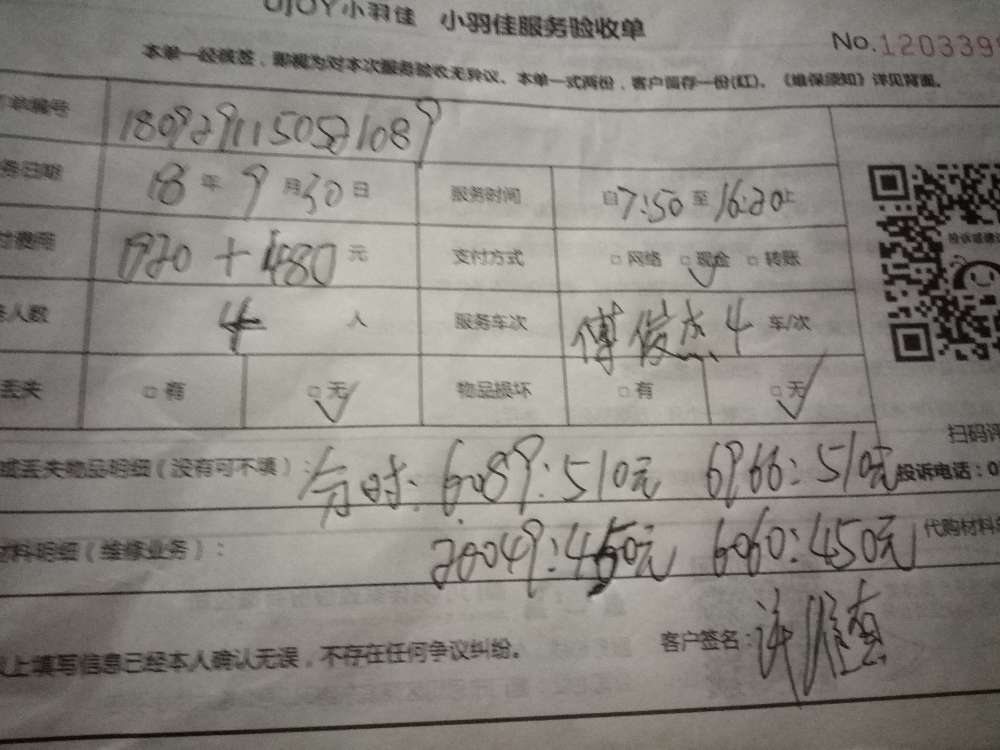 UJOY小羽佳 小羽佳服务验收单
No.120339
本单一经核签，即视为对本次服务验收无异议。本单一式两份，客户留存一份(红)。《维保须知》详见背面。
单编号 1809291150521089
务日期 18年9月30日 服务时间 自7:50至16:20止
付费用 1920+480元 支付方式 □网络 □现金 □转账
人数 4人 服务车次 傅俊杰4车/次
丢失 □有 □无 物品损坏 □有 □无
投诉或建
扫码评
或丢失物品明细（没有可不填）： 6089:510元 6966:510元 投诉电话：0
材料明细（维修业务）： 20049:450元 6060:450元 代购材料
以上填写信息已经本人确认无误，不存在任何争议纠纷。 客户签名：